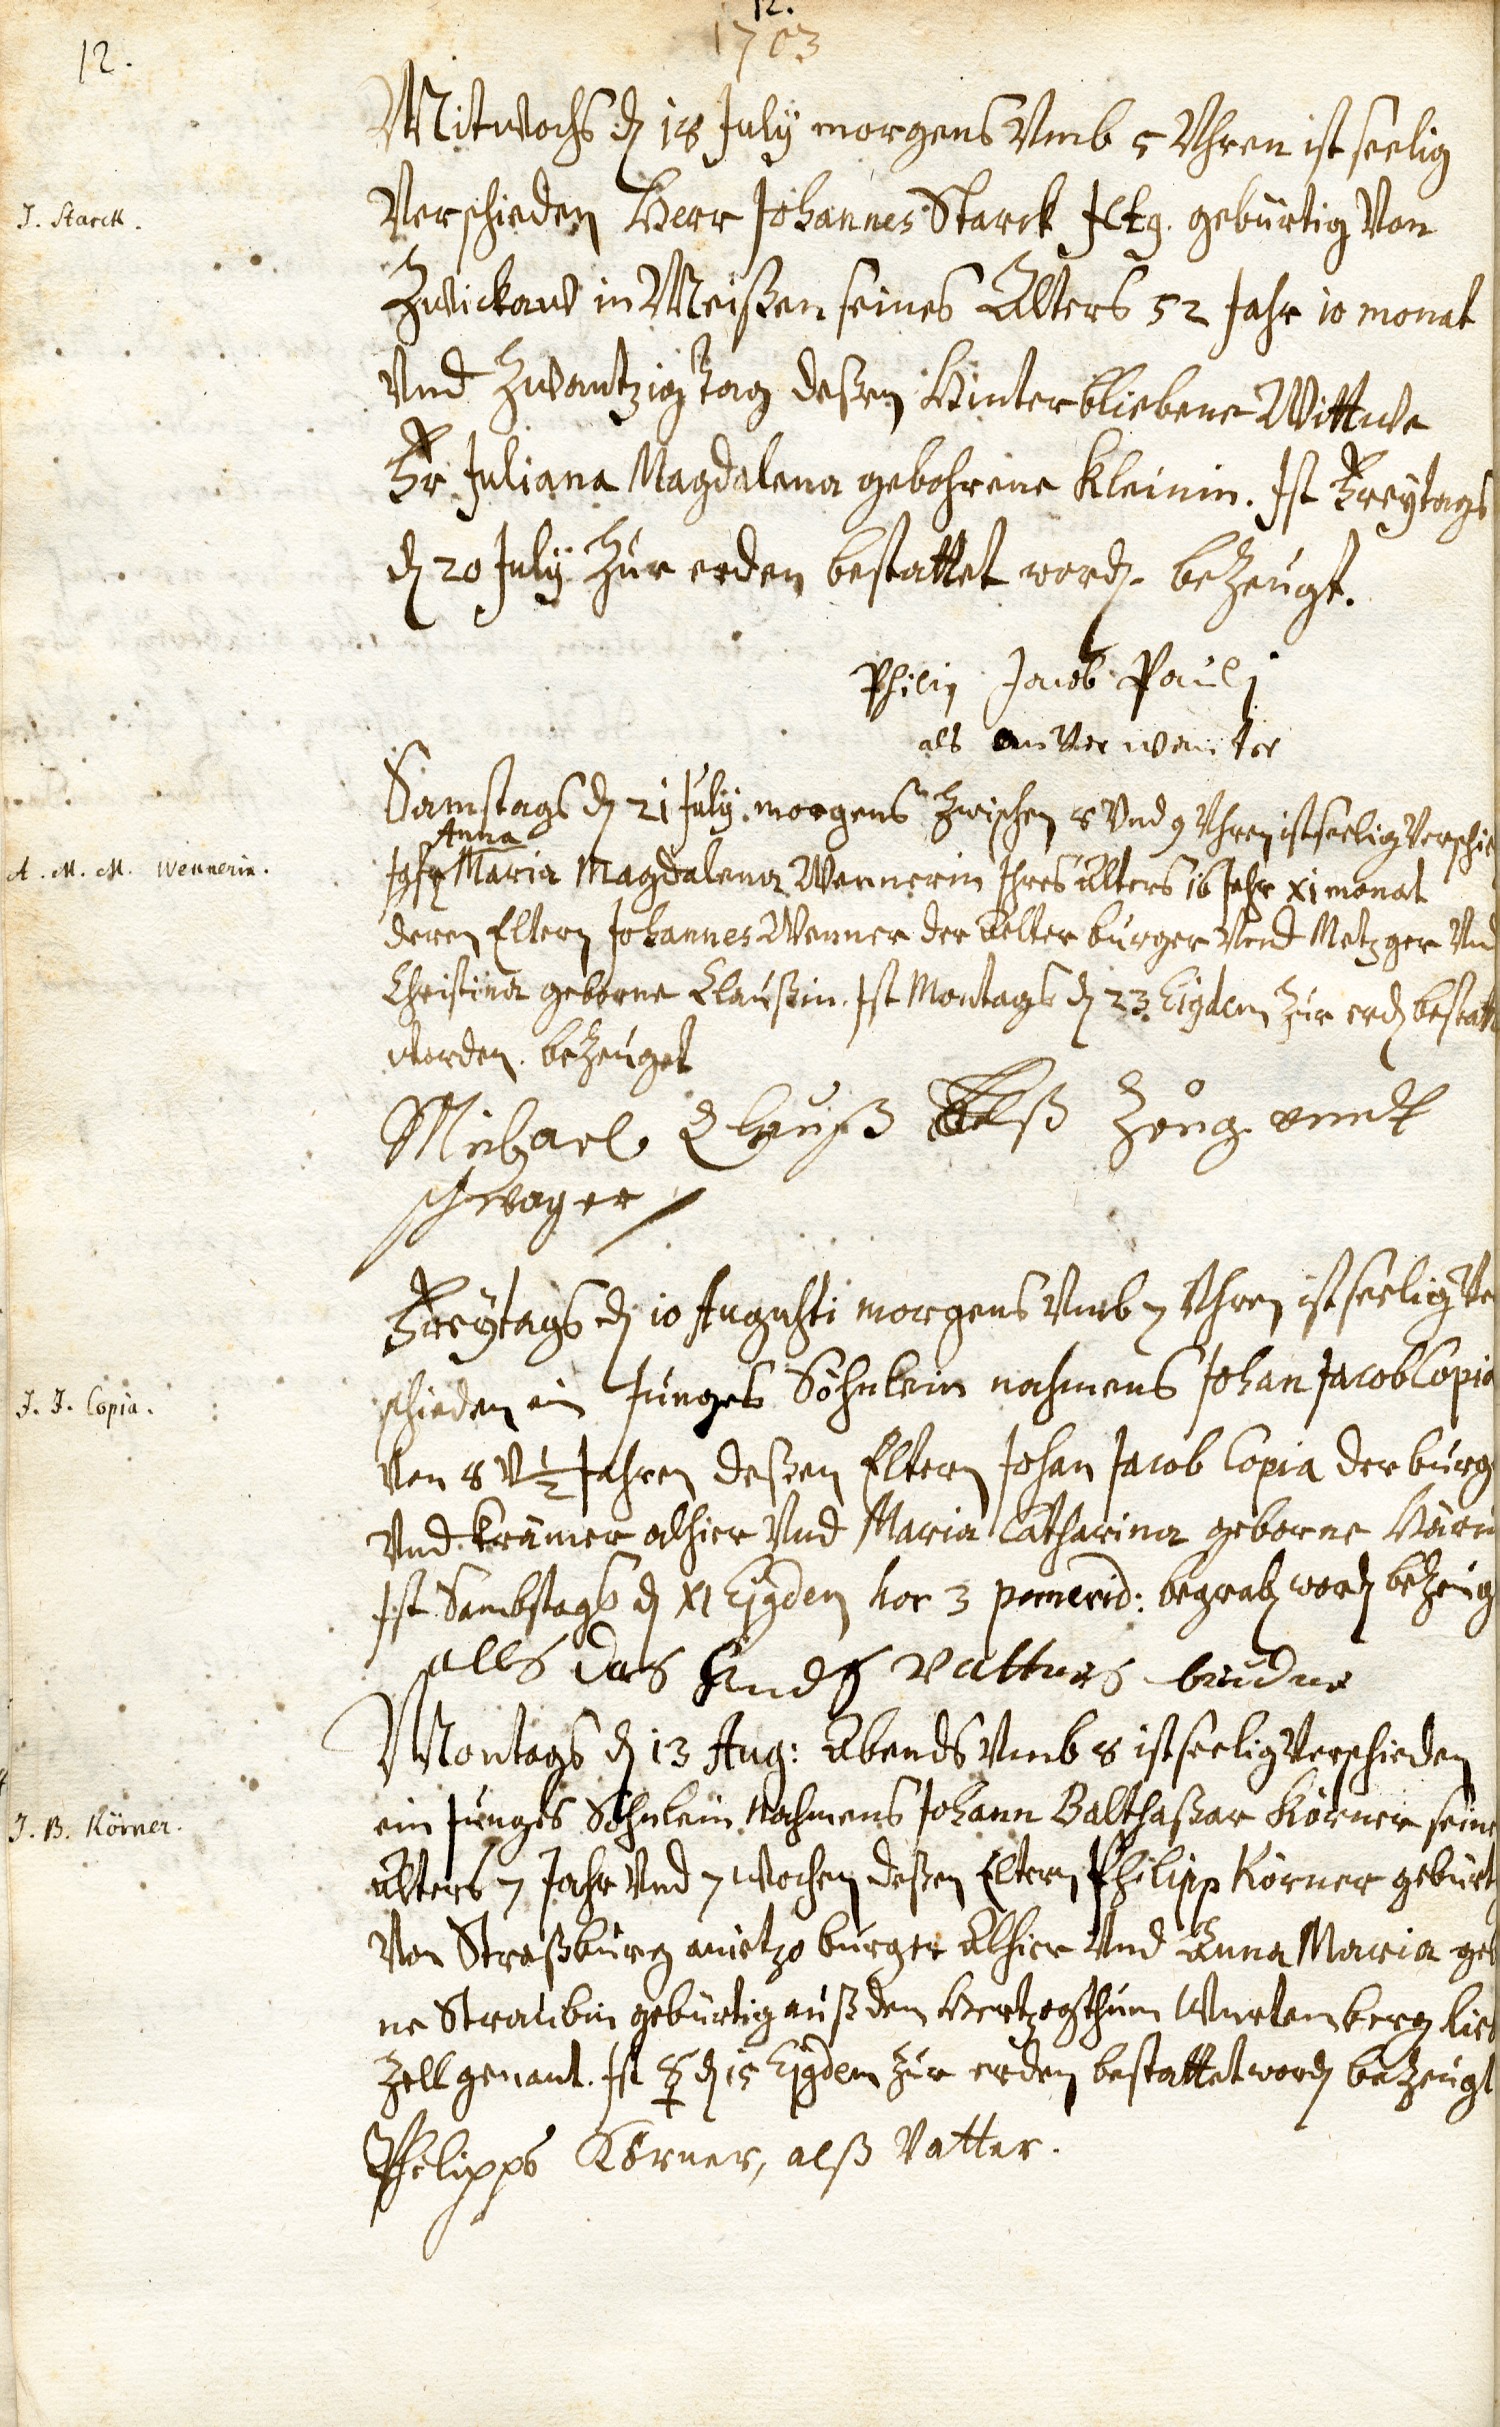 12.
12.
1703
Mitwochs d 18 July morgens Vmb 5 Vhren ist seelig
J. Starck.
Verschieden Herr Johannes Starck gebürtig Von
Zwickaw in Meißen seines Alters 52 Jahr 10 monat
Vnd Zwantzig Tag deßen Hinterbliebene Wittwe
Fr Juliana Magdalena gebohrene Kleinin. Ist Freytags
d 20 July Zur erden bestattet word. beZeugt.
Philip Jacob Pauli
als anVerwanter
Samstags d 21 July morgens Zwischen 8 Vnd 9 Vhren ist seelig Verschie
Anna
A. M. M. Wennerin.
Jgfr Maria Magdalena Wennerin Ihres Alters 16 Jahr XI monat
deren Eltern Johannes Wenner der Aelter burger Vnd Metzger Vnd
Christina geborne Claußin. Ist Montags d 23 Eigdem Zur erd bestatt
worden. beZeuget
Michael Clauß Alß Zeug vndt
schwager
Freytags d 10 Augusti morgens Vmb 7 Vhren ist seelig Ve
J. J. Copia.
schieden ein Junges Söhnlein nahmens Johan Jacob Copia
Von 8 V 1/2 Jahren deßen Eltern Johan Jacob Copia der burg
Vnd Krämer alhier Vnd Maria Catharina geborne
Ist Sambstags d XI Ejgdem hor 3 pomerid: begrab word beZeug
alls das Kinds Vatters bruder
Montags d 13 Aug: Abends Vmb 8 ist seelig Verschieden
J. B. Körner.
ein Junges Söhnlein Nahmens Johann Balthaßar Körner seine
Alters 7 Jahr Vnd 7 Wochen deßen Eltern Philipp Körner gebürt
Von Straßburg anietzo burger Alhier Vnd Anna Maria geb
ne Straubin gebürtig auß dem Hertzogthum Wurtemberg Lieb
Zell genant. Ist ☿ d 15 Ejgdem Zur erden bestattet word beZeugt
Philipps Körner, alß Vatter.